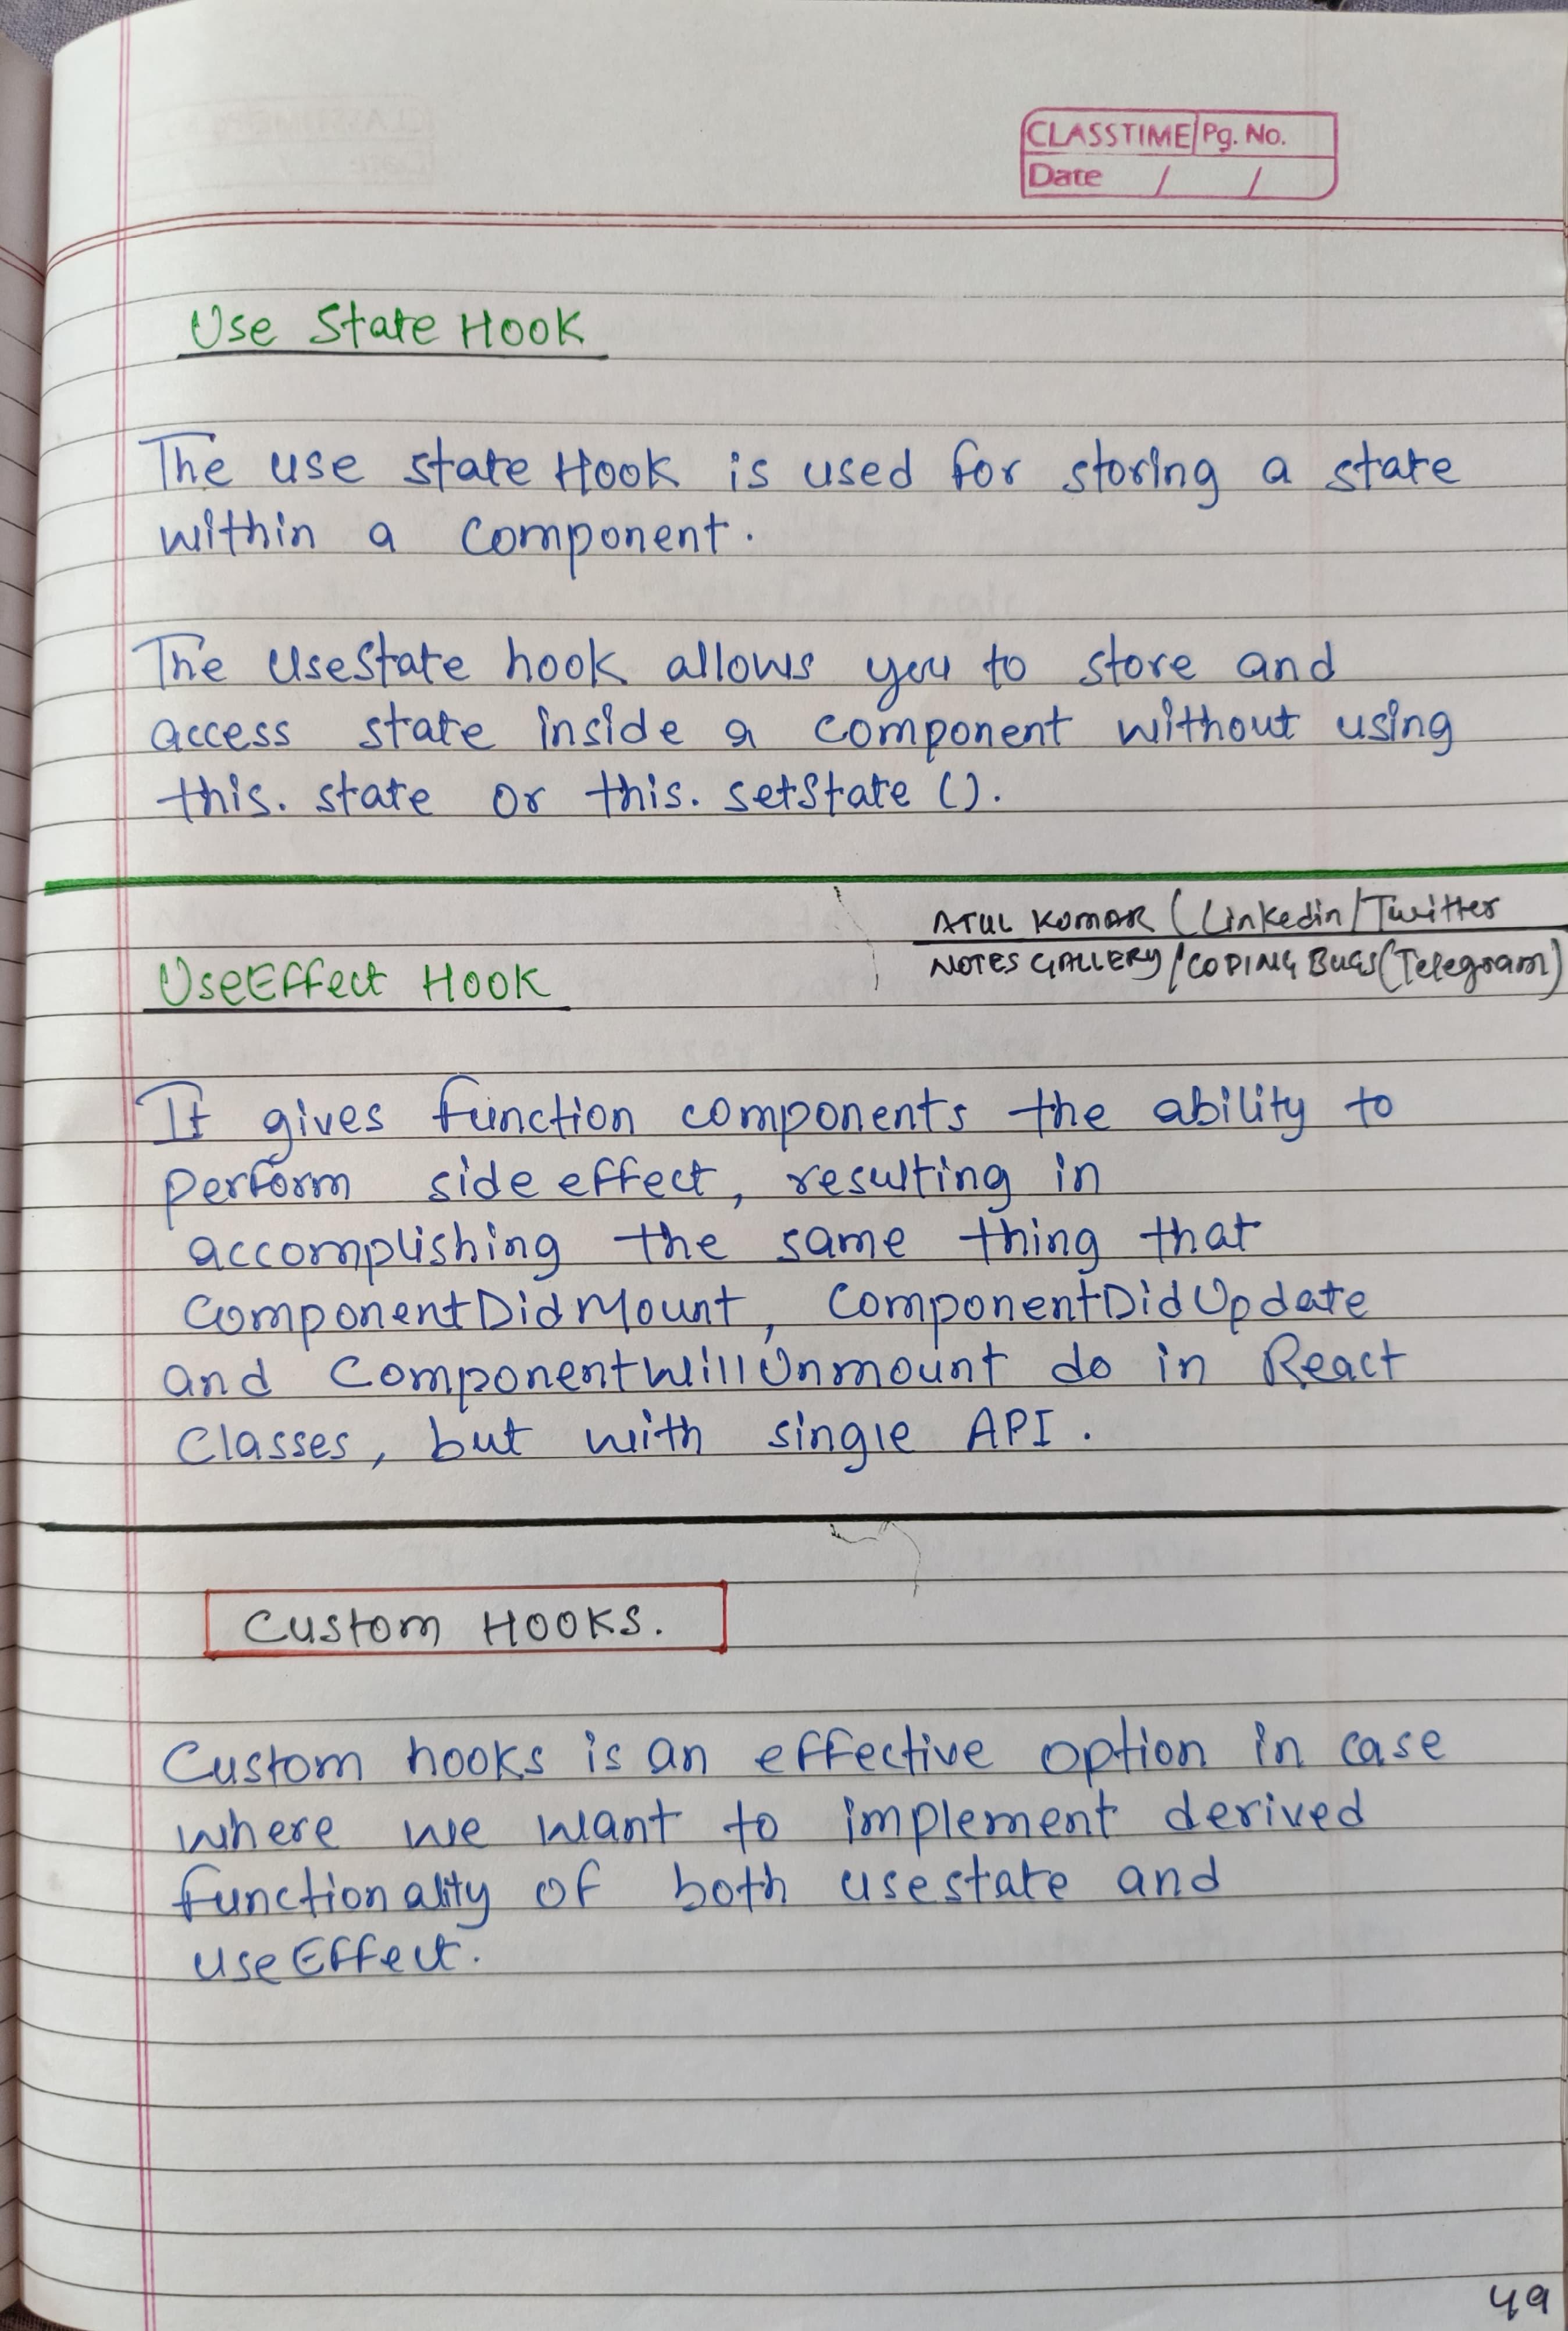 CLASSTIME Pg. No.
Date / /
Use State Hook
The use state Hook is used for storing a state
within a component.
The UseState hook allows you to store and
access state inside a component without using
this. state or this. setState ().
ATUL KUMAR (Linkedin/Twitter
NOTES GALLERY/CODING BUGS(Telegram)
UseEffect Hook
It gives function components the ability to
perform side effect, resulting in
accomplishing the same thing that
ComponentDidMount, ComponentDidUpdate
and ComponentWillUnmount do in React
Classes, but with single API.
Custom HOOKS.
Custom hooks is an effective option in case
where we want to implement derived
functionality of both usestate and
useEffect.
49